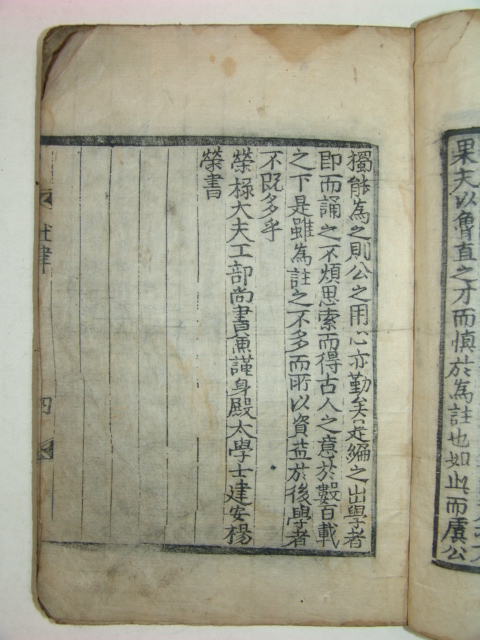 果夫以魯直之才而慎於為註也如此而虞公
獨能為之則公之用心亦勤矣是編之出學者
即而誦之不煩思索而得古人之意於數百載
之下是雖為註之不多而所以資益於後學者
不既多乎
榮祿大夫工部尚書兼謹身殿大學士建安楊
榮書
杜律
四